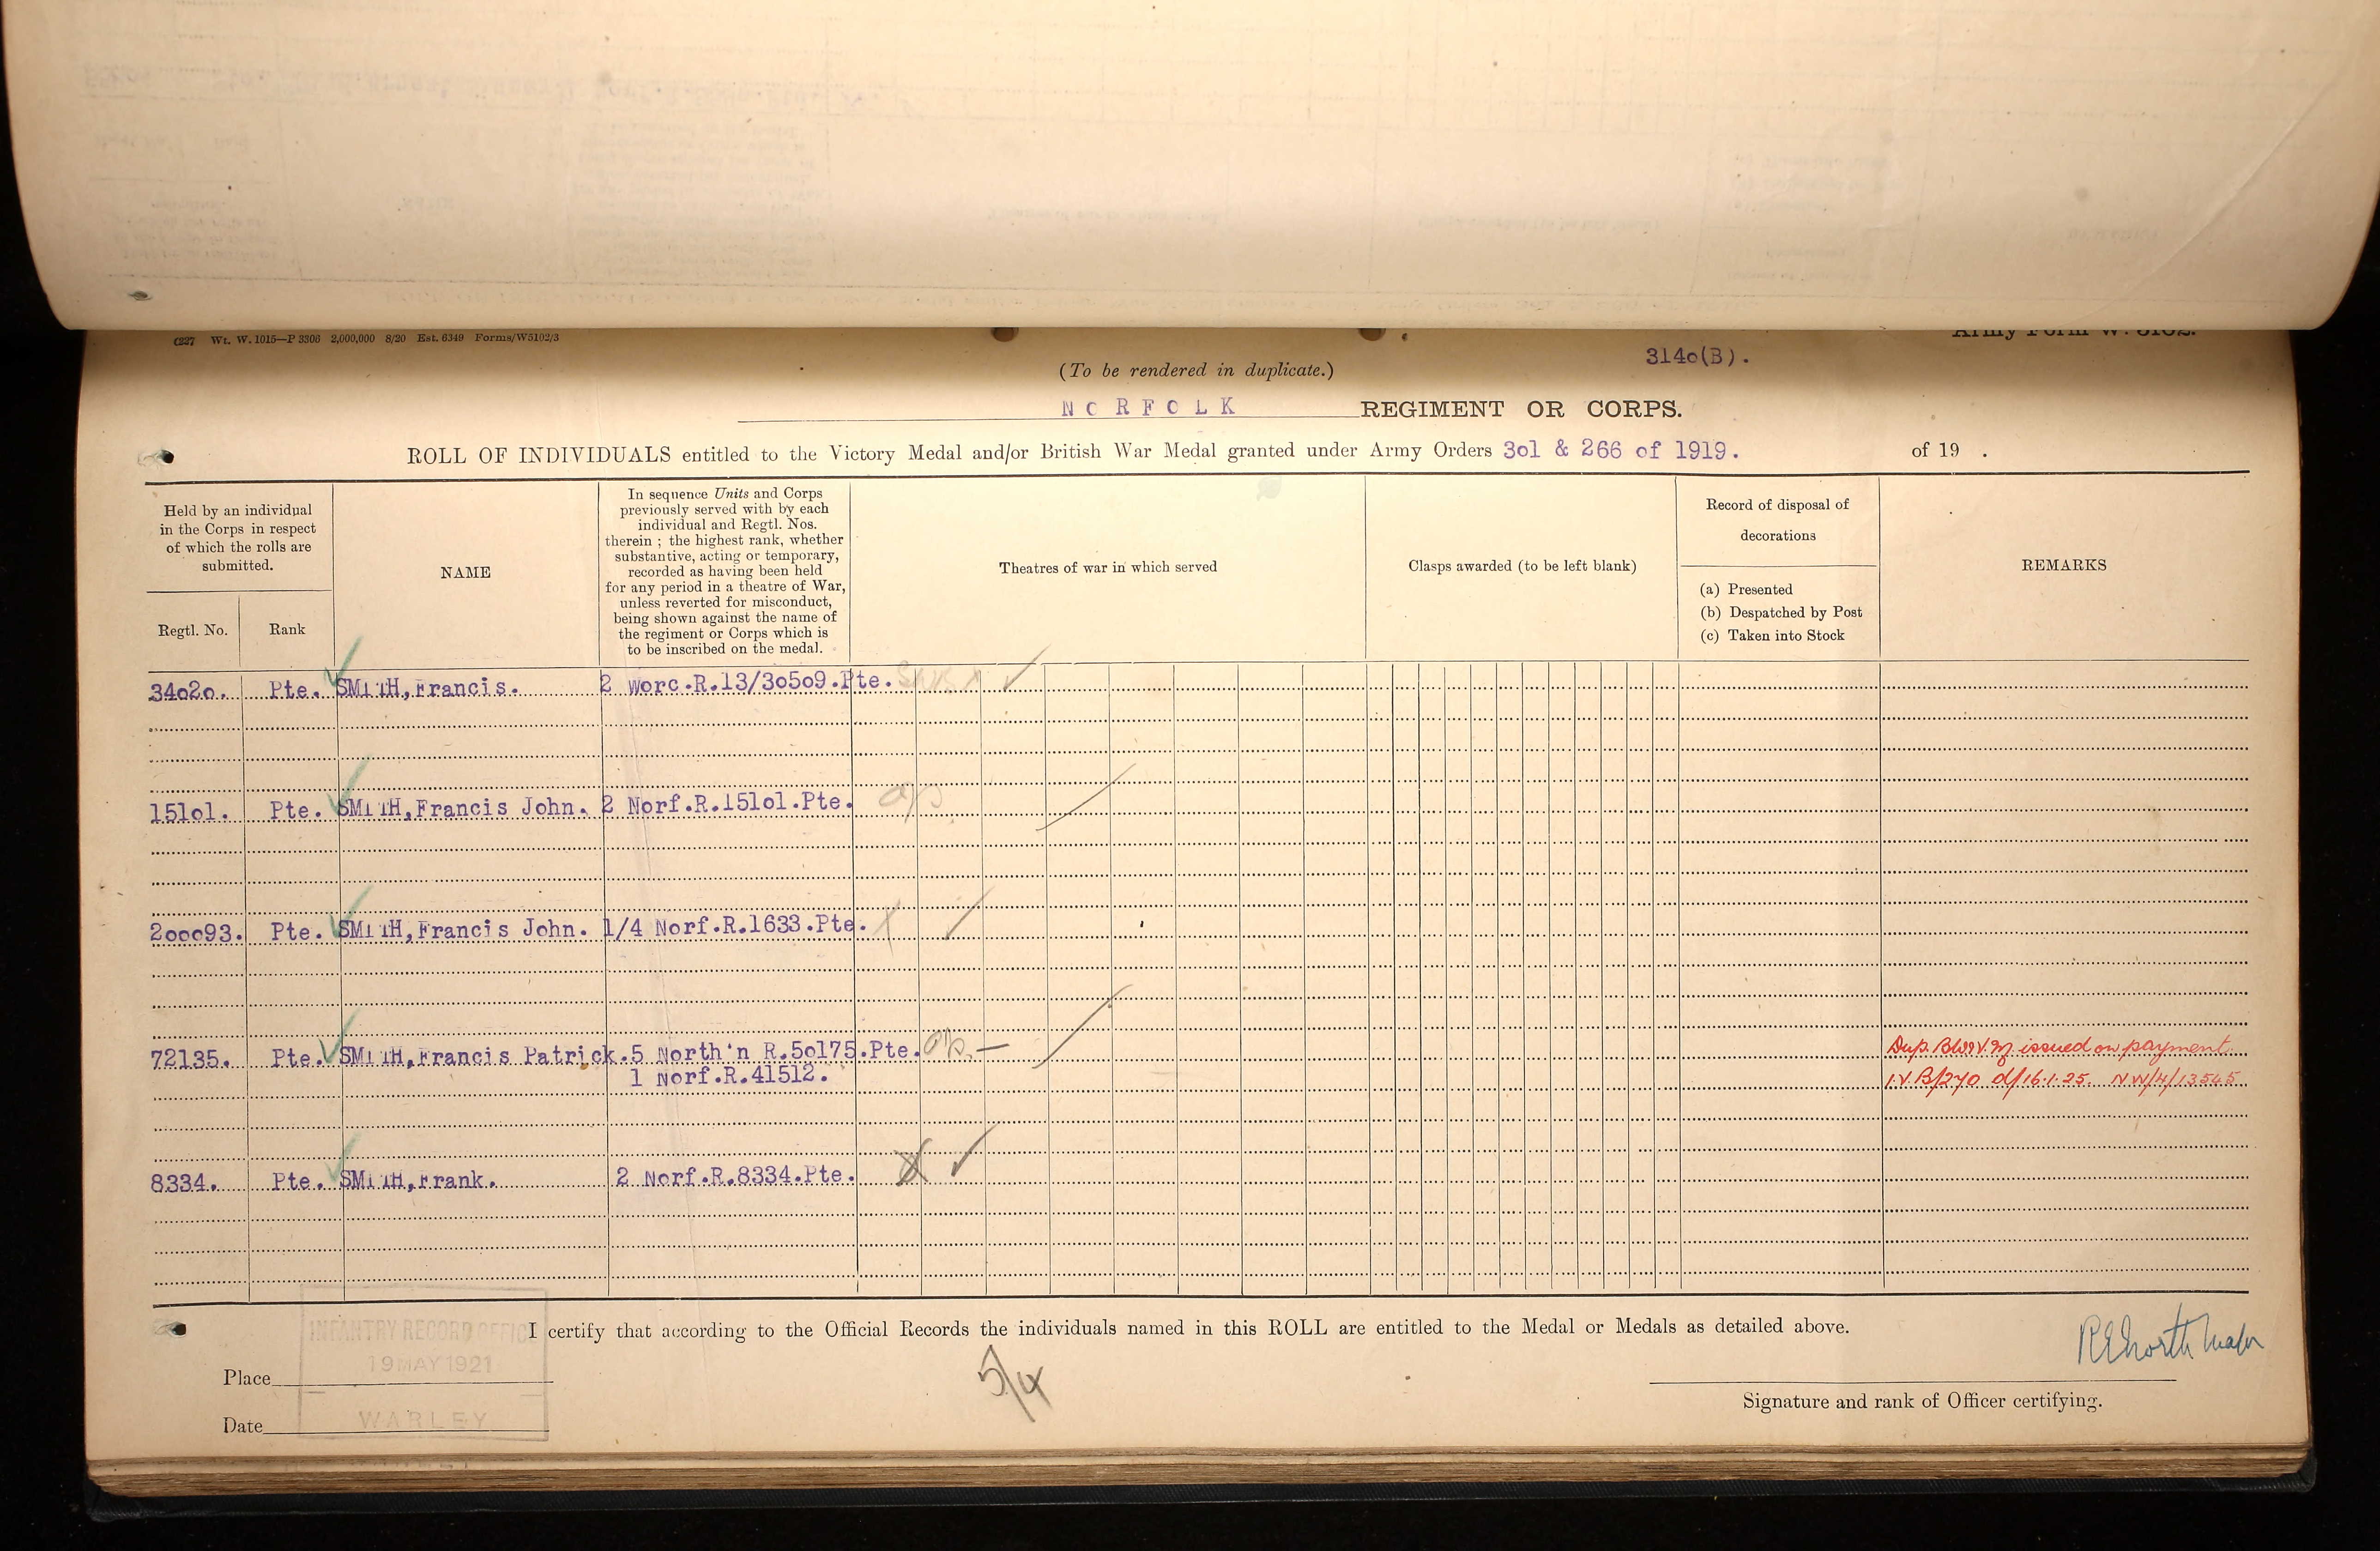 Wt. W. 1015—P 3306 2,000,000 8/20 Est. 6349 Forms/W5102/3
Army Form W. 5102.
3140(B).
(To be rendered in duplicate.)
NORFOLK REGIMENT OR CORPS.
ROLL OF INDIVIDUALS entitled to the Victory Medal and/or British War Medal granted under Army Orders 301 & 266 of 1919. of 19 .
Held by an individual
in the Corps in respect
of which the rolls are
submitted.
Regtl. No.
Rank
NAME
In sequence Units and Corps
previously served with by each
individual and Regtl. Nos.
therein ; the highest rank, whether
substantive, acting or temporary,
recorded as having been held
for any period in a theatre of War,
unless reverted for misconduct,
being shown against the name of
the regiment or Corps which is
to be inscribed on the medal.
Theatres of war in which served
Clasps awarded (to be left blank)
Record of disposal of
decorations
(a) Presented
(b) Despatched by Post
(c) Taken into Stock
REMARKS
34020. Pte. SMITH, Francis. 2 Worc.R.13/30509.Pte.
15101. Pte. SMITH, Francis John. 2 Norf.R.15101.Pte.
200093. Pte. SMITH, Francis John. 1/4 Norf.R.1633.Pte.
72135. Pte. SMITH, Francis Patrick. 5 North'n R.50175.Pte. Dup. BW&V.M issued on payment
1 Norf.R.41512. 1.V.B/270 d/16.1.25. NW/4/13545
8334. Pte. SMITH, Frank. 2 Norf.R.8334.Pte.
I certify that according to the Official Records the individuals named in this ROLL are entitled to the Medal or Medals as detailed above.
INFANTRY RECORD OFFICE
19 MAY 1921
WARLEY
Place
Date
5/4
North Major
Signature and rank of Officer certifying.